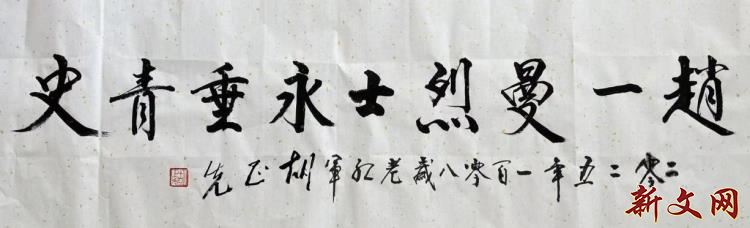 趙一曼烈士永垂青史
二零二五年一百零八歲老红軍胡正先
新文网